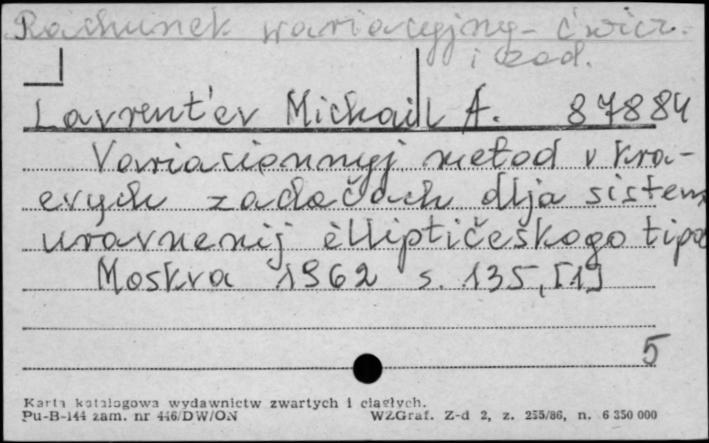 Rachunek wariacyjny - ćwicz.
i zad.
Lavrent'ev Michail A. 87884
Variacionnyj metod v kra-
evych zadačach dlja sistem
uravnenij èlliptičeskogo tipa
Moskva 1962 s. 135, [1]
5
Karta katalogowa wydawnictw zwartych i ciągłych.
Pu-B-144 zam. nr 446/DW/ON WZGraf. Z-d 2, z. 255/86, n. 6 350 000